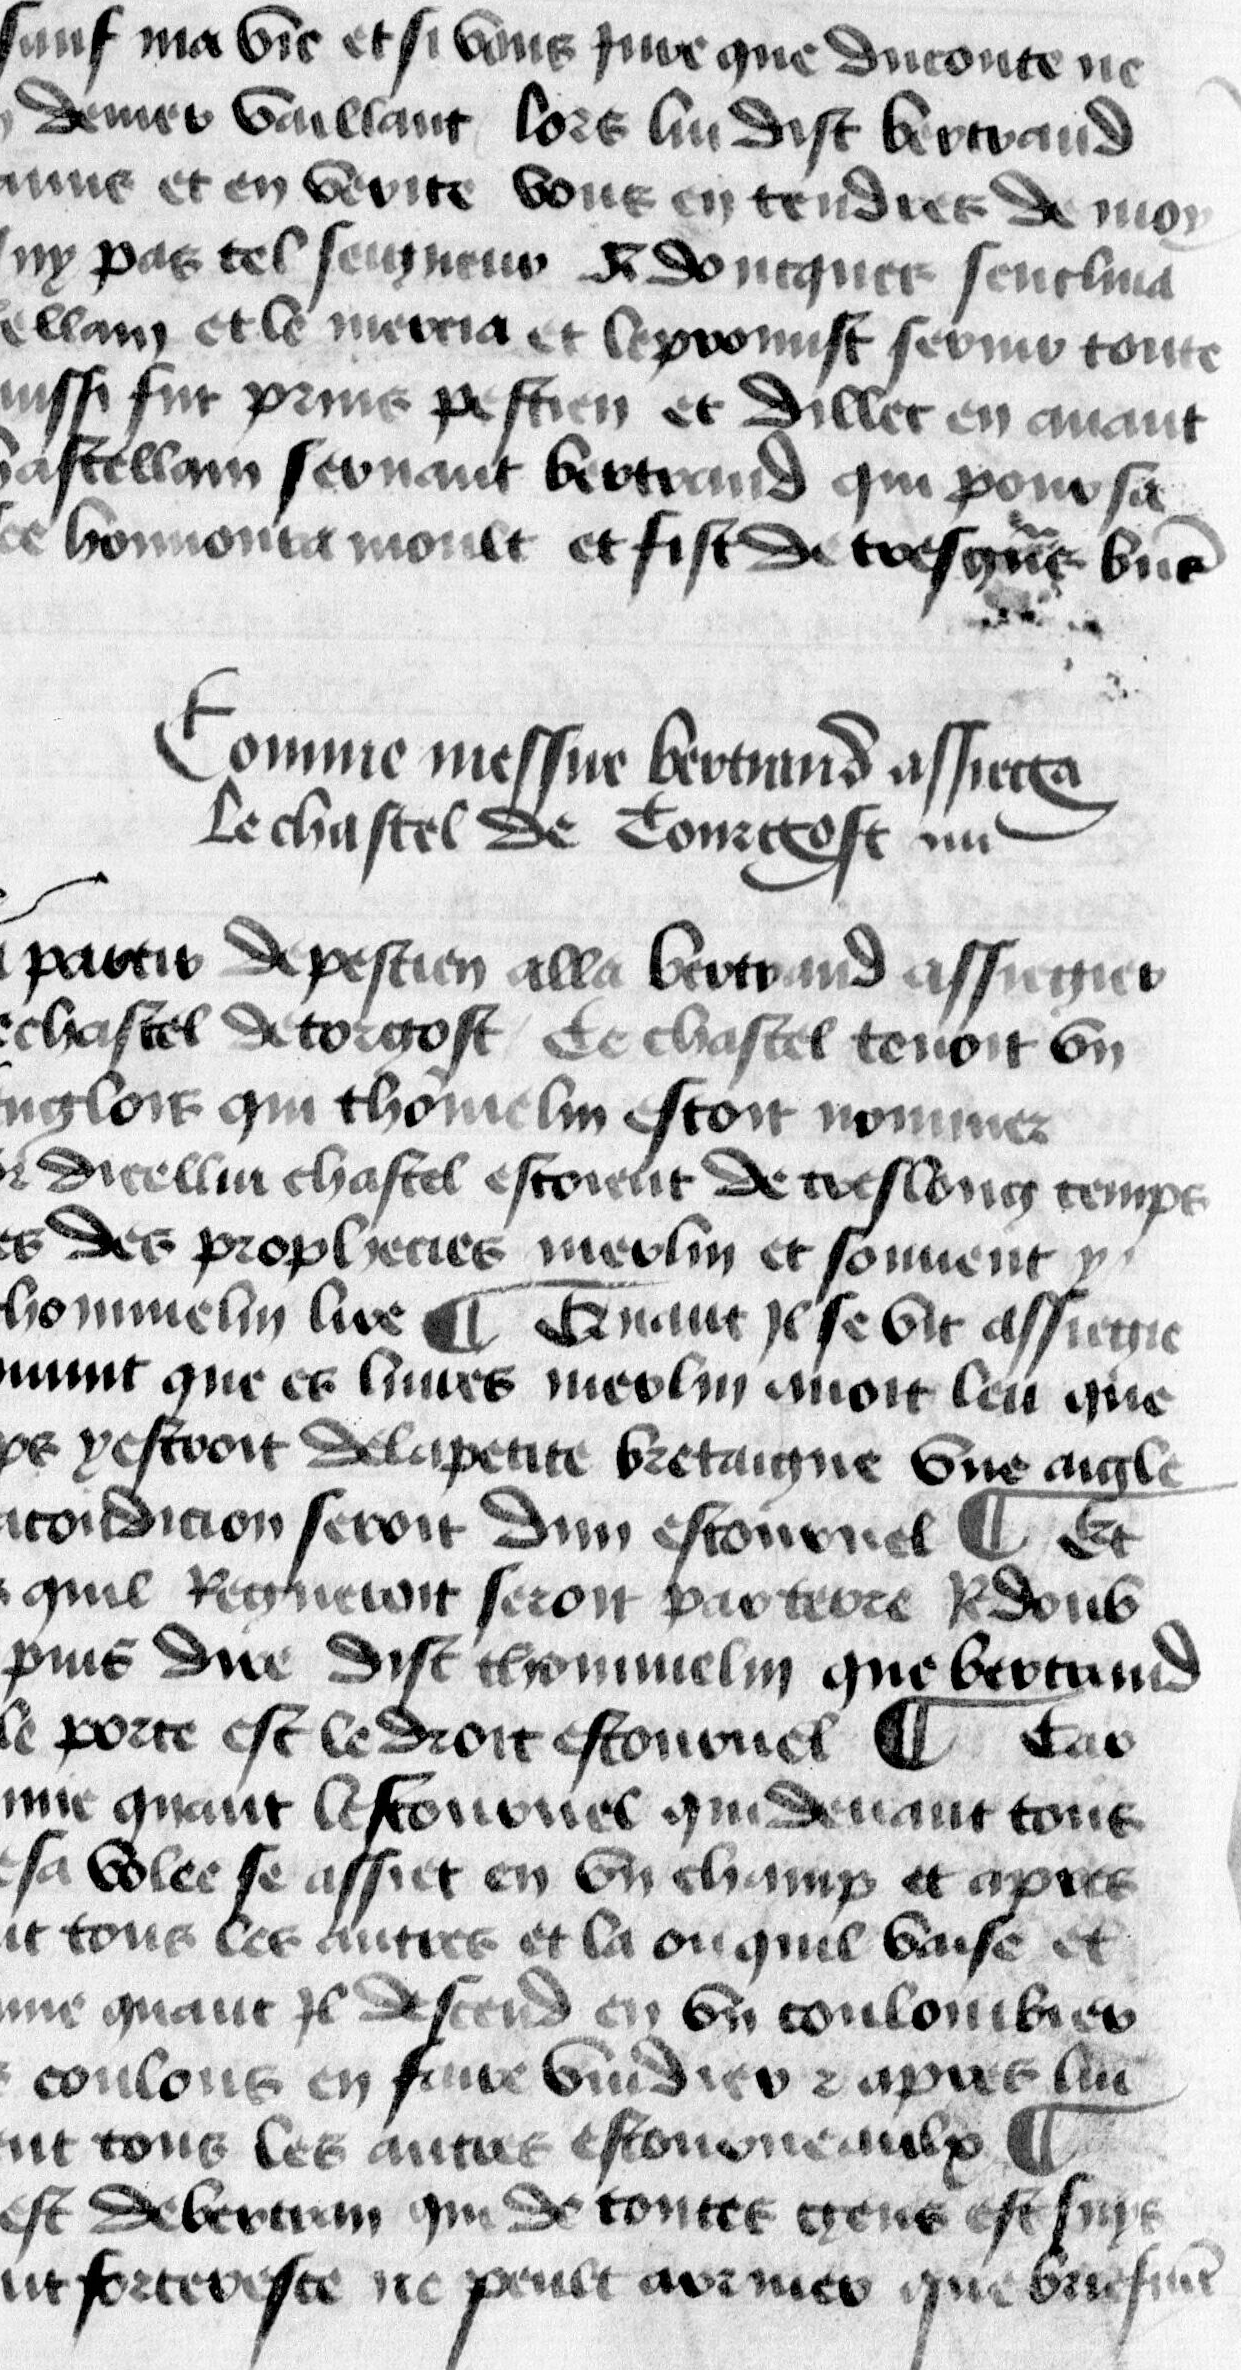 sauf ma vie et si vous jure que du conte ne
denier vaillant lors lui dist bertrand
et en verite vous en tendres de moy
ny pas tel seigneur Adoncques senclina
ellain et le mercia et le promist servir toute
aussi fut prins pestien et dillec en avant
hastellain servant bertrand qui pour sa
ce honnoura moult et fist de tresgns bns
Comme messire bertrand assiega
Le chastel de Tourgost iiii
partir de pestien alla bertrand assiegier
echastel de torgost Ce chastel tenoit vn
Anglois qui thomelin estoit nommez
dicellui chastel estoient de treslong temps
es des prophecies merlin et souvent y
thommelin lire ¶ Quant Il se vit assiegie
que es livres merlin avoit leu que
ps ystroit de la petite bretaigne vne aigle
acondicion seroit dun estournel ¶ Et
quil Regneroit seroit par terre Redoub
puis dire dist thommelin que bertrand
le porte est le droit estournel ¶ Car
mme quant lestournel qui devant tous
esa volee se assiet en vn champ et apres
nt tous les autres et la ou quil voise et
mme quant Il descend en vn coulombier
coulons en faire vuidier et apres lui
ent tous les autres estourneaulx ¶
est de bertran qui de toutes gens est suys
nt forteresce ne peult arriver que briefmt